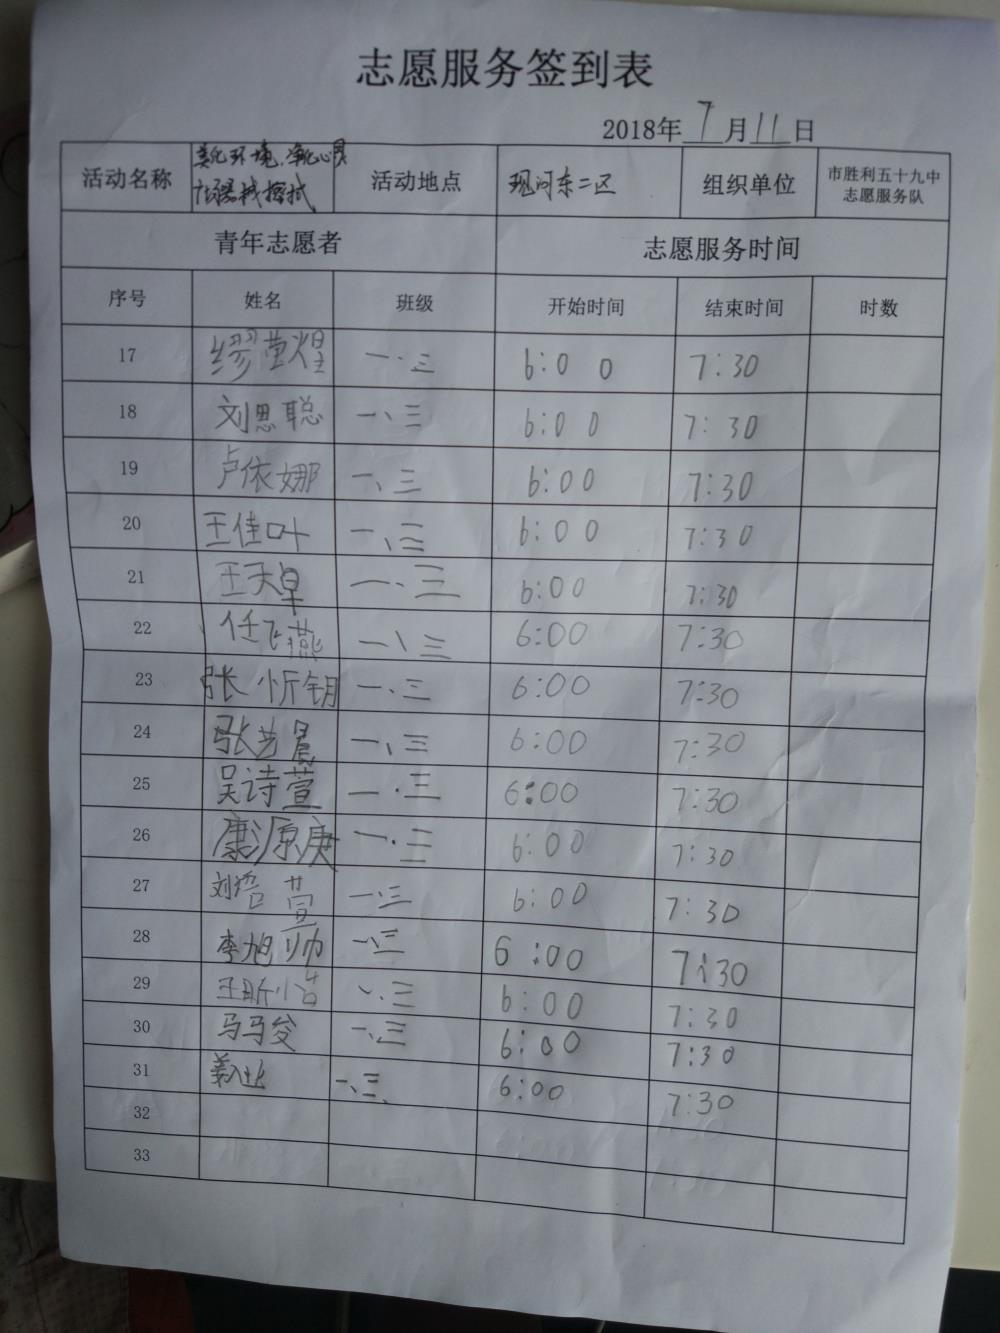 志愿服务签到表
2018年7月11日
活动名称 美化环境,净化心灵 活动地点 现河东二区 组织单位 市胜利五十九中志愿服务队
擦拭
青年志愿者 志愿服务时间
序号 姓名 班级 开始时间 结束时间 时数
17 缪萤煌 一.三 6:00 7:30
18 刘思聪 一、三 6:00 7:30
19 卢依娜 一、三 6:00 7:30
20 王佳叶 一、三 6:00 7:30
21 王天卓 一.三 6:00 7:30
22 任飞燕 一、三 6:00 7:30
23 张忻钥 一、三 6:00 7:30
24 张艺晨 一、三 6:00 7:30
25 吴诗萱 一.三 6:00 7:30
26 康源庚 一.三 6:00 7:30
27 刘萱 一.三 6:00 7:30
28 李旭帅 一、三 6:00 7:30
29 王昕 一、三 6:00 7:30
30 马马俊 一、三 6:00 7:30
31 姜 一、三、 6:00 7:30
32
33